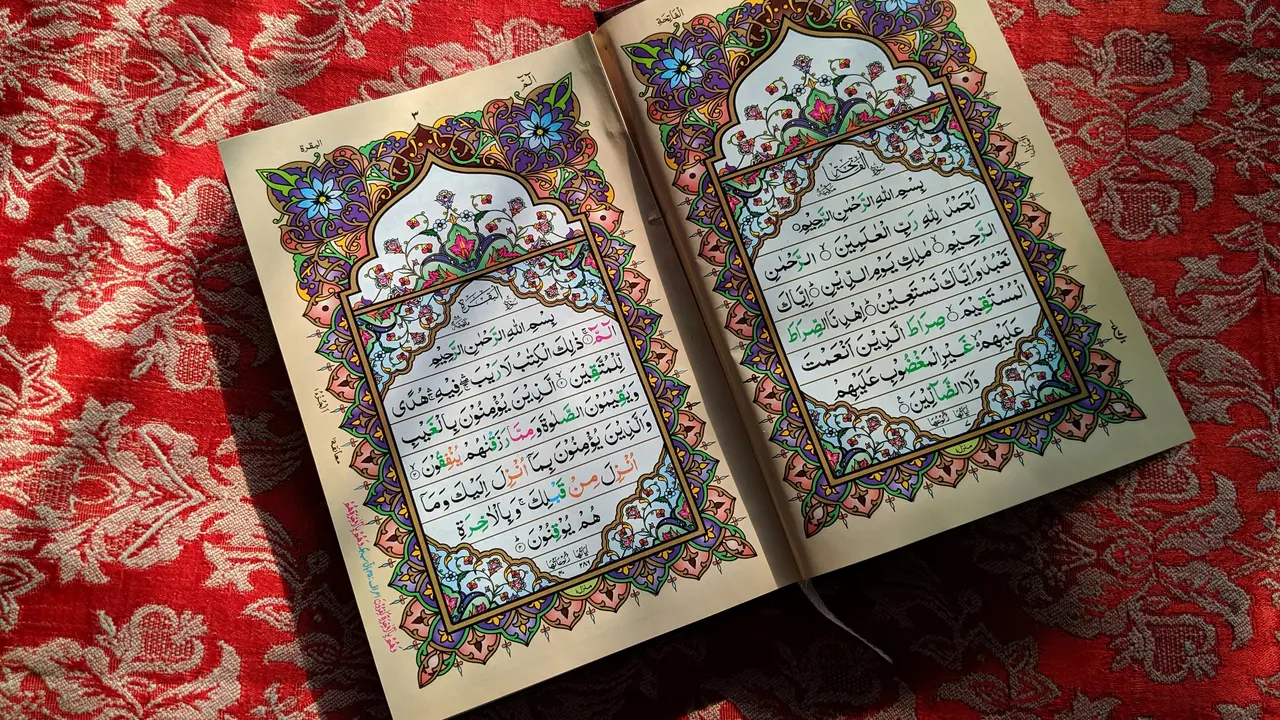 الفاتحة
سورة الفاتحة مكية
بِسْمِ اللهِ الرَّحْمٰنِ الرَّحِيْمِ
اَلْحَمْدُ لِلّٰهِ رَبِّ الْعٰلَمِيْنَ ۙ الرَّحْمٰنِ
الرَّحِيْمِ ۙ مٰلِكِ يَوْمِ الدِّيْنِ ۗ اِيَّاكَ
نَعْبُدُ وَاِيَّاكَ نَسْتَعِيْنُ ۗ اِهْدِنَا الصِّرَاطَ
الْمُسْتَقِيْمَ ۙ صِرَاطَ الَّذِيْنَ اَنْعَمْتَ
عَلَيْهِمْ ۙ غَيْرِ الْمَغْضُوْبِ عَلَيْهِمْ
وَلَا الضَّآلِّيْنَ
الٓمّٓ
٣
البقرة
سورة البقرة
بِسْمِ اللهِ الرَّحْمٰنِ الرَّحِيْمِ
الٓمّٓ ۚ ذٰلِكَ الْكِتٰبُ لَا رَيْبَ ۛ فِيْهِ ۛ هُدًى
لِّلْمُتَّقِيْنَ ۙ الَّذِيْنَ يُؤْمِنُوْنَ بِالْغَيْبِ
وَيُقِيْمُوْنَ الصَّلٰوةَ وَمِمَّا رَزَقْنٰهُمْ يُنْفِقُوْنَ ۙ
وَالَّذِيْنَ يُؤْمِنُوْنَ بِمَآ اُنْزِلَ اِلَيْكَ وَمَآ
اُنْزِلَ مِنْ قَبْلِكَ ۚ وَبِالْاٰخِرَةِ
هُمْ يُوْقِنُوْنَ
٢٨٦